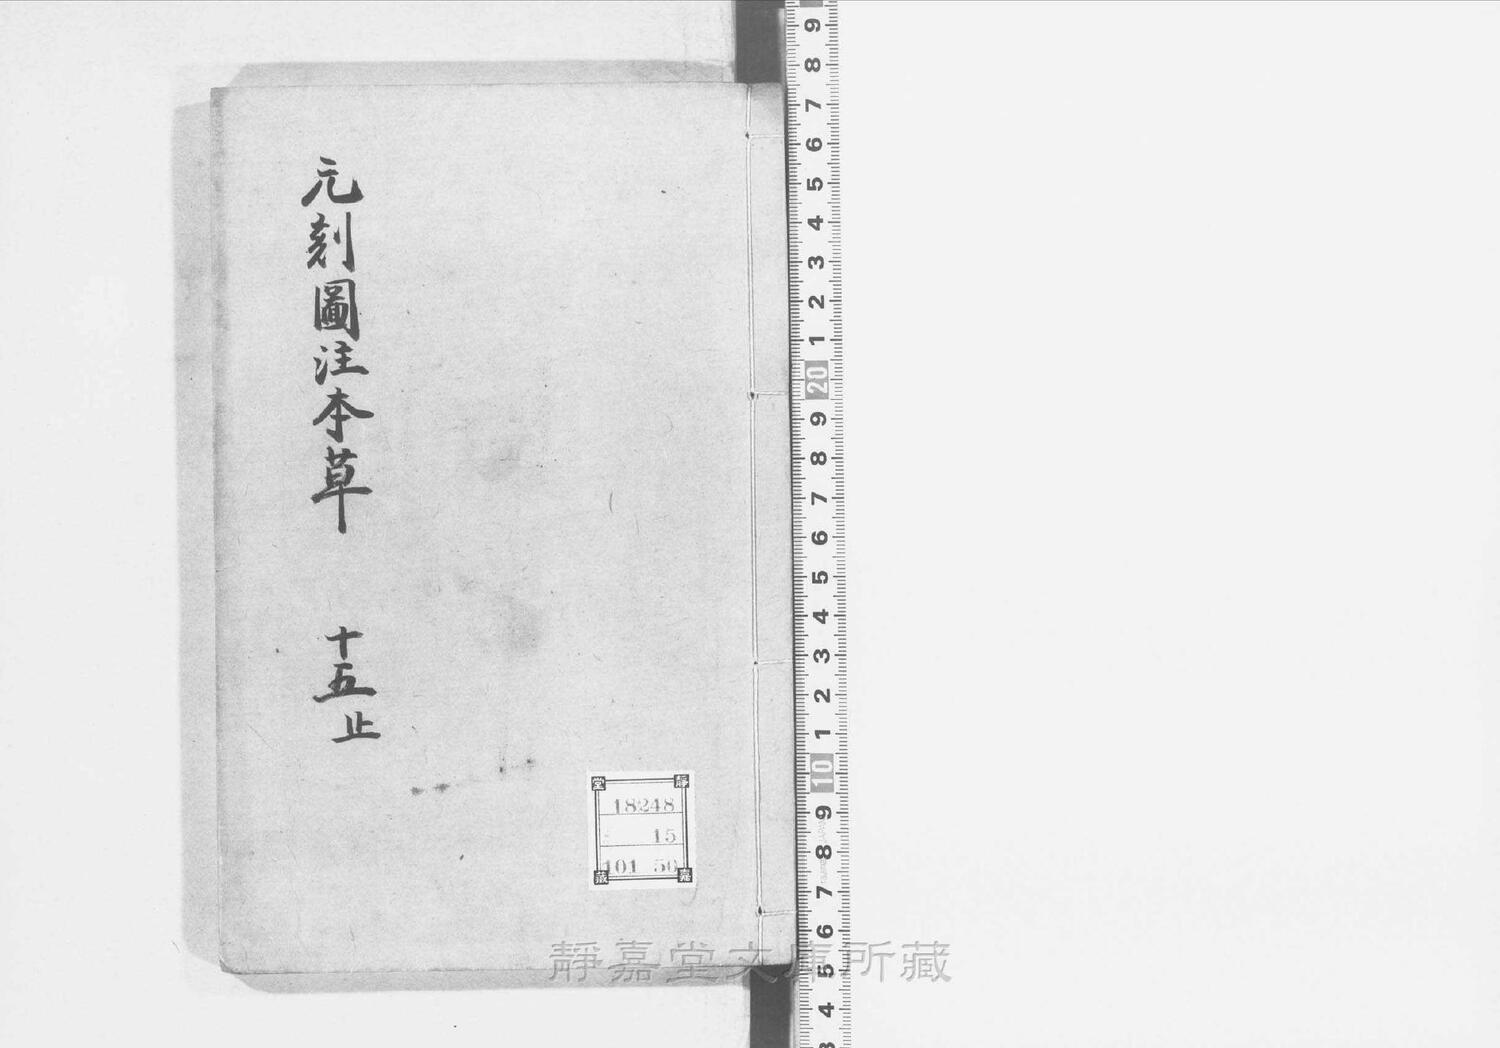 元刻圖注本草 十五止
靜
嘉
堂
藏
18248
15
101 50
靜嘉堂文庫所藏
9
8
7
6
5
4
3
2
1
20
9
8
7
6
5
4
3
2
1
10
9
8
7
6
5
4
3